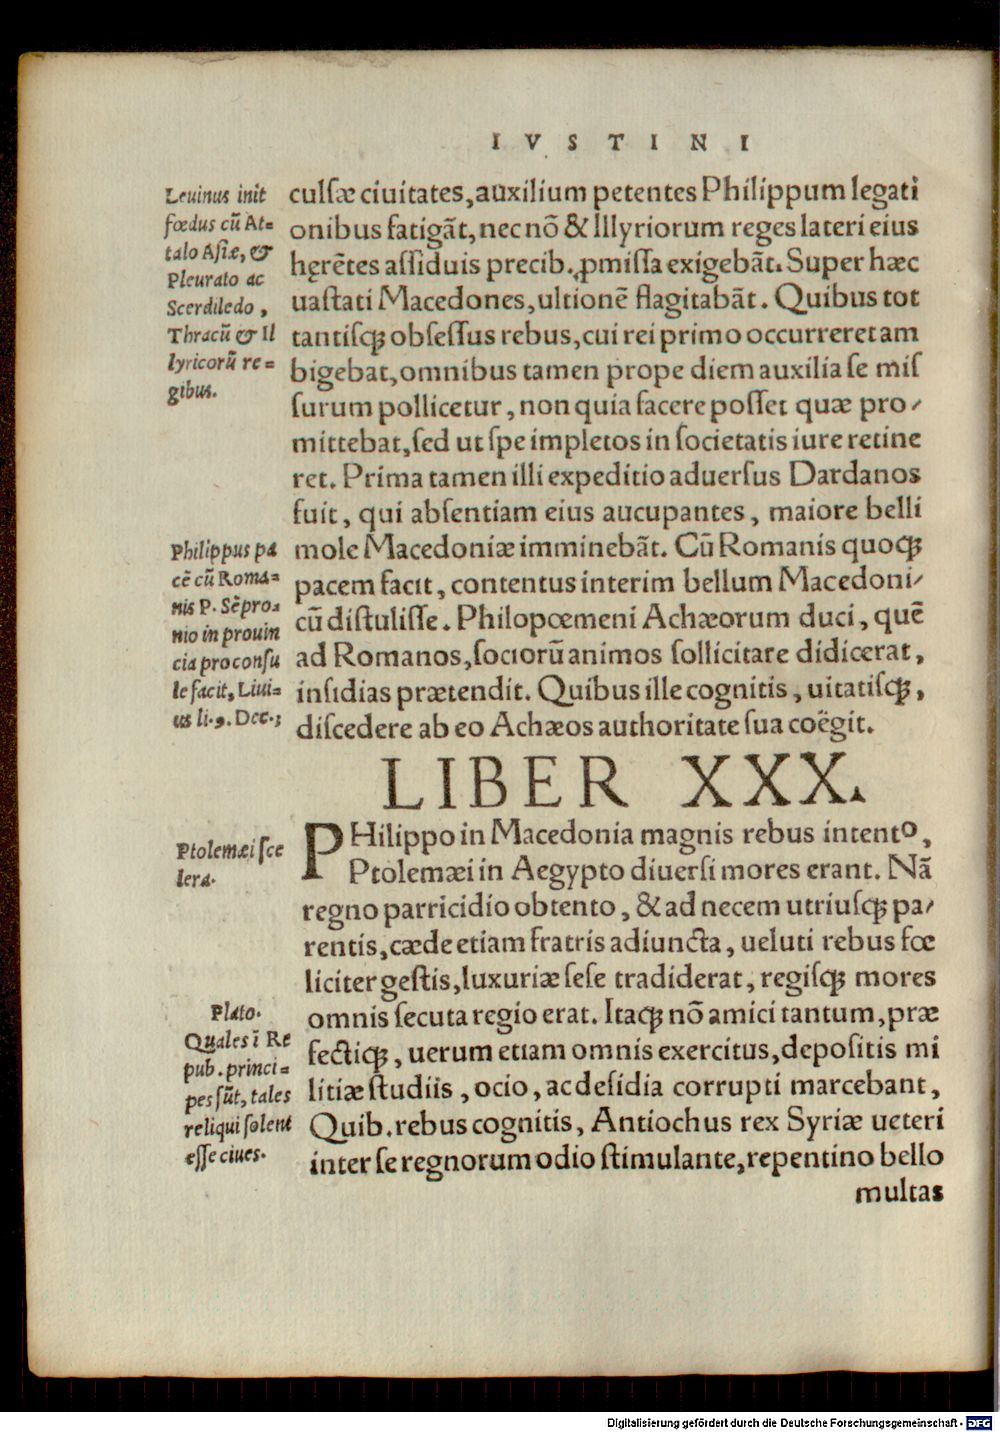 IVSTINI
culsæ ciuitates, auxilium petentes Philippum legati
onibus fatigāt, nec nō & Illyriorum reges lateri eius
hęrētes assiduis precib. ꝓmissa exigebāt. Super hæc
uastati Macedones, ultionē flagitabāt. Quibus tot
tantisqꝫ obsessus rebus, cui rei primo occurreret am
bigebat, omnibus tamen prope diem auxilia se mis
surum pollicetur, non quia facere posset quæ pro/
mittebat, sed ut spe impletos in societatis iure retine
ret. Prima tamen illi expeditio aduersus Dardanos
fuit, qui absentiam eius aucupantes, maiore belli
mole Macedoniæ imminebāt. Cū Romanis quoqꝫ
pacem facit, contentus interim bellum Macedoni/
cū distulisse. Philopœmeni Achæorum duci, quē
ad Romanos, sociorū animos sollicitare didicerat,
insidias prætendit. Quibus ille cognitis, uitatisqꝫ,
discedere ab eo Achæos authoritate sua coëgit.
Leuinus init
fœdus cū At=
talo Asiæ, &
Pleurato ac
Scerdiledo,
Thracū & Il
lyricorū re=
gibus.
Philippus pa
cē cū Roma=
nis P. Sēpro=
nio in prouin
cia proconsu
le facit, Liui=
us li. 9. Dec. 3
LIBER XXX.
PHilippo in Macedonia magnis rebus intento,
Ptolemæi in Aegypto diuersi mores erant. Nā
regno parricidio obtento, & ad necem utriusqꝫ pa/
rentis, cæde etiam fratris adiuncta, ueluti rebus fœ
liciter gestis, luxuriæ sese tradiderat, regisqꝫ mores
omnis secuta regio erat. Itaqꝫ nō amici tantum, præ
fectiqꝫ, uerum etiam omnis exercitus, depositis mi
litiæ studiis, ocio, ac desidia corrupti marcebant,
Quib. rebus cognitis, Antiochus rex Syriæ ueteri
inter se regnorum odio stimulante, repentino bello
multas
Ptolemæi sce
lera.
Plato.
Quales ī Re
pub. princi=
pes sūt, tales
reliqui solent
esse ciues.
Digitalisierung gefördert durch die Deutsche Forschungsgemeinschaft - DFG